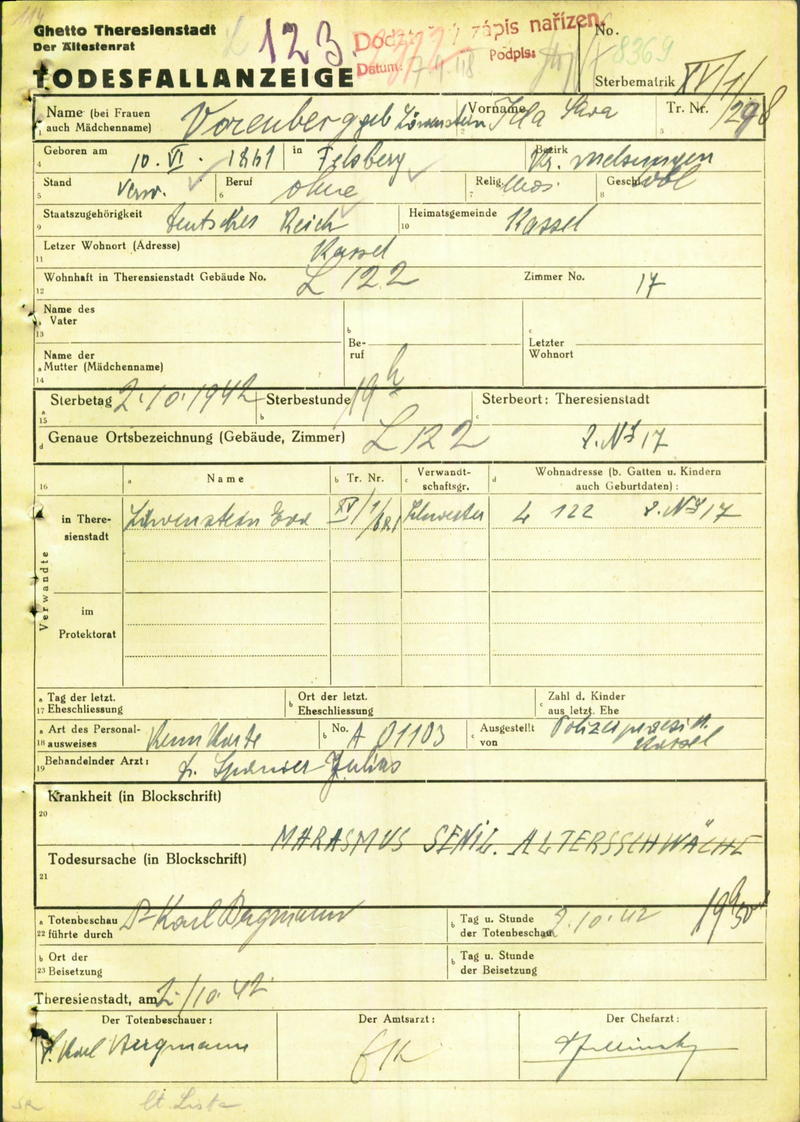 114
Ghetto Theresienstadt
Der Ältestenrat
123.
Dodateč zápis nařízen
Datum: Podpis:
No.
8369
TODESFALLANZEIGE
Sterbematrik XV/1/298
1 Name (bei Frauen auch Mädchenname) Vorenberg geb Löwenstein Vorname Ida Sara 3 Tr. Nr.
4 Geboren am 10. VI. 1861 in Felsberg Bezirk Kr. Melsungen
5 Stand Verw. 6 Beruf ohne 7 Relig. Mos. 8 Geschl. wbl
9 Staatszugehörigkeit deutsches Reich 10 Heimatsgemeinde Kassel
11 Letzer Wohnort (Adresse) Kassel
12 Wohnhaft in Theresienstadt Gebäude No. L 122 Zimmer No. 17
13 Name des Vater
b Beruf
c Letzter Wohnort
14 a Name der Mutter (Mädchenname)
15 a Sterbetag 2.10.1942 b Sterbestunde 19 h c Sterbeort: Theresienstadt
d Genaue Ortsbezeichnung (Gebäude, Zimmer) L 122 17
16 a Name b Tr. Nr. c Verwandtschaftsgr. d Wohnadresse (b. Gatten u. Kindern auch Geburtdaten):
Verwandte
in Theresienstadt Löwenstein XV/1/ Schwester L 122 17
im Protektorat
17 a Tag der letzt. Eheschliessung b Ort der letzt. Eheschliessung c Zahl d. Kinder aus letzt. Ehe
18 a Art des Personalausweises Kennkarte b No. A 01103 c Ausgestellt von Polizeipräsid. Kassel
19 Behandelnder Arzt: Dr. Spanier Julius
20 Krankheit (in Blockschrift)
MARASMUS SENIL. ALTERSSCHWÄCHE
21 Todesursache (in Blockschrift)
22 a Totenbeschau führte durch Dr Karl Bergmann b Tag u. Stunde der Totenbeschau 2.10.42 19 50
23 b Ort der Beisetzung b Tag u. Stunde der Beisetzung
Theresienstadt, am 2./10.42.
Der Totenbeschauer: Der Amtsarzt: Der Chefarzt:
Dr. Karl Bergmann
lt. Liste